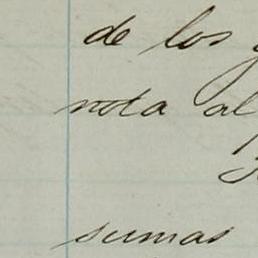 de los
nota al
sumas